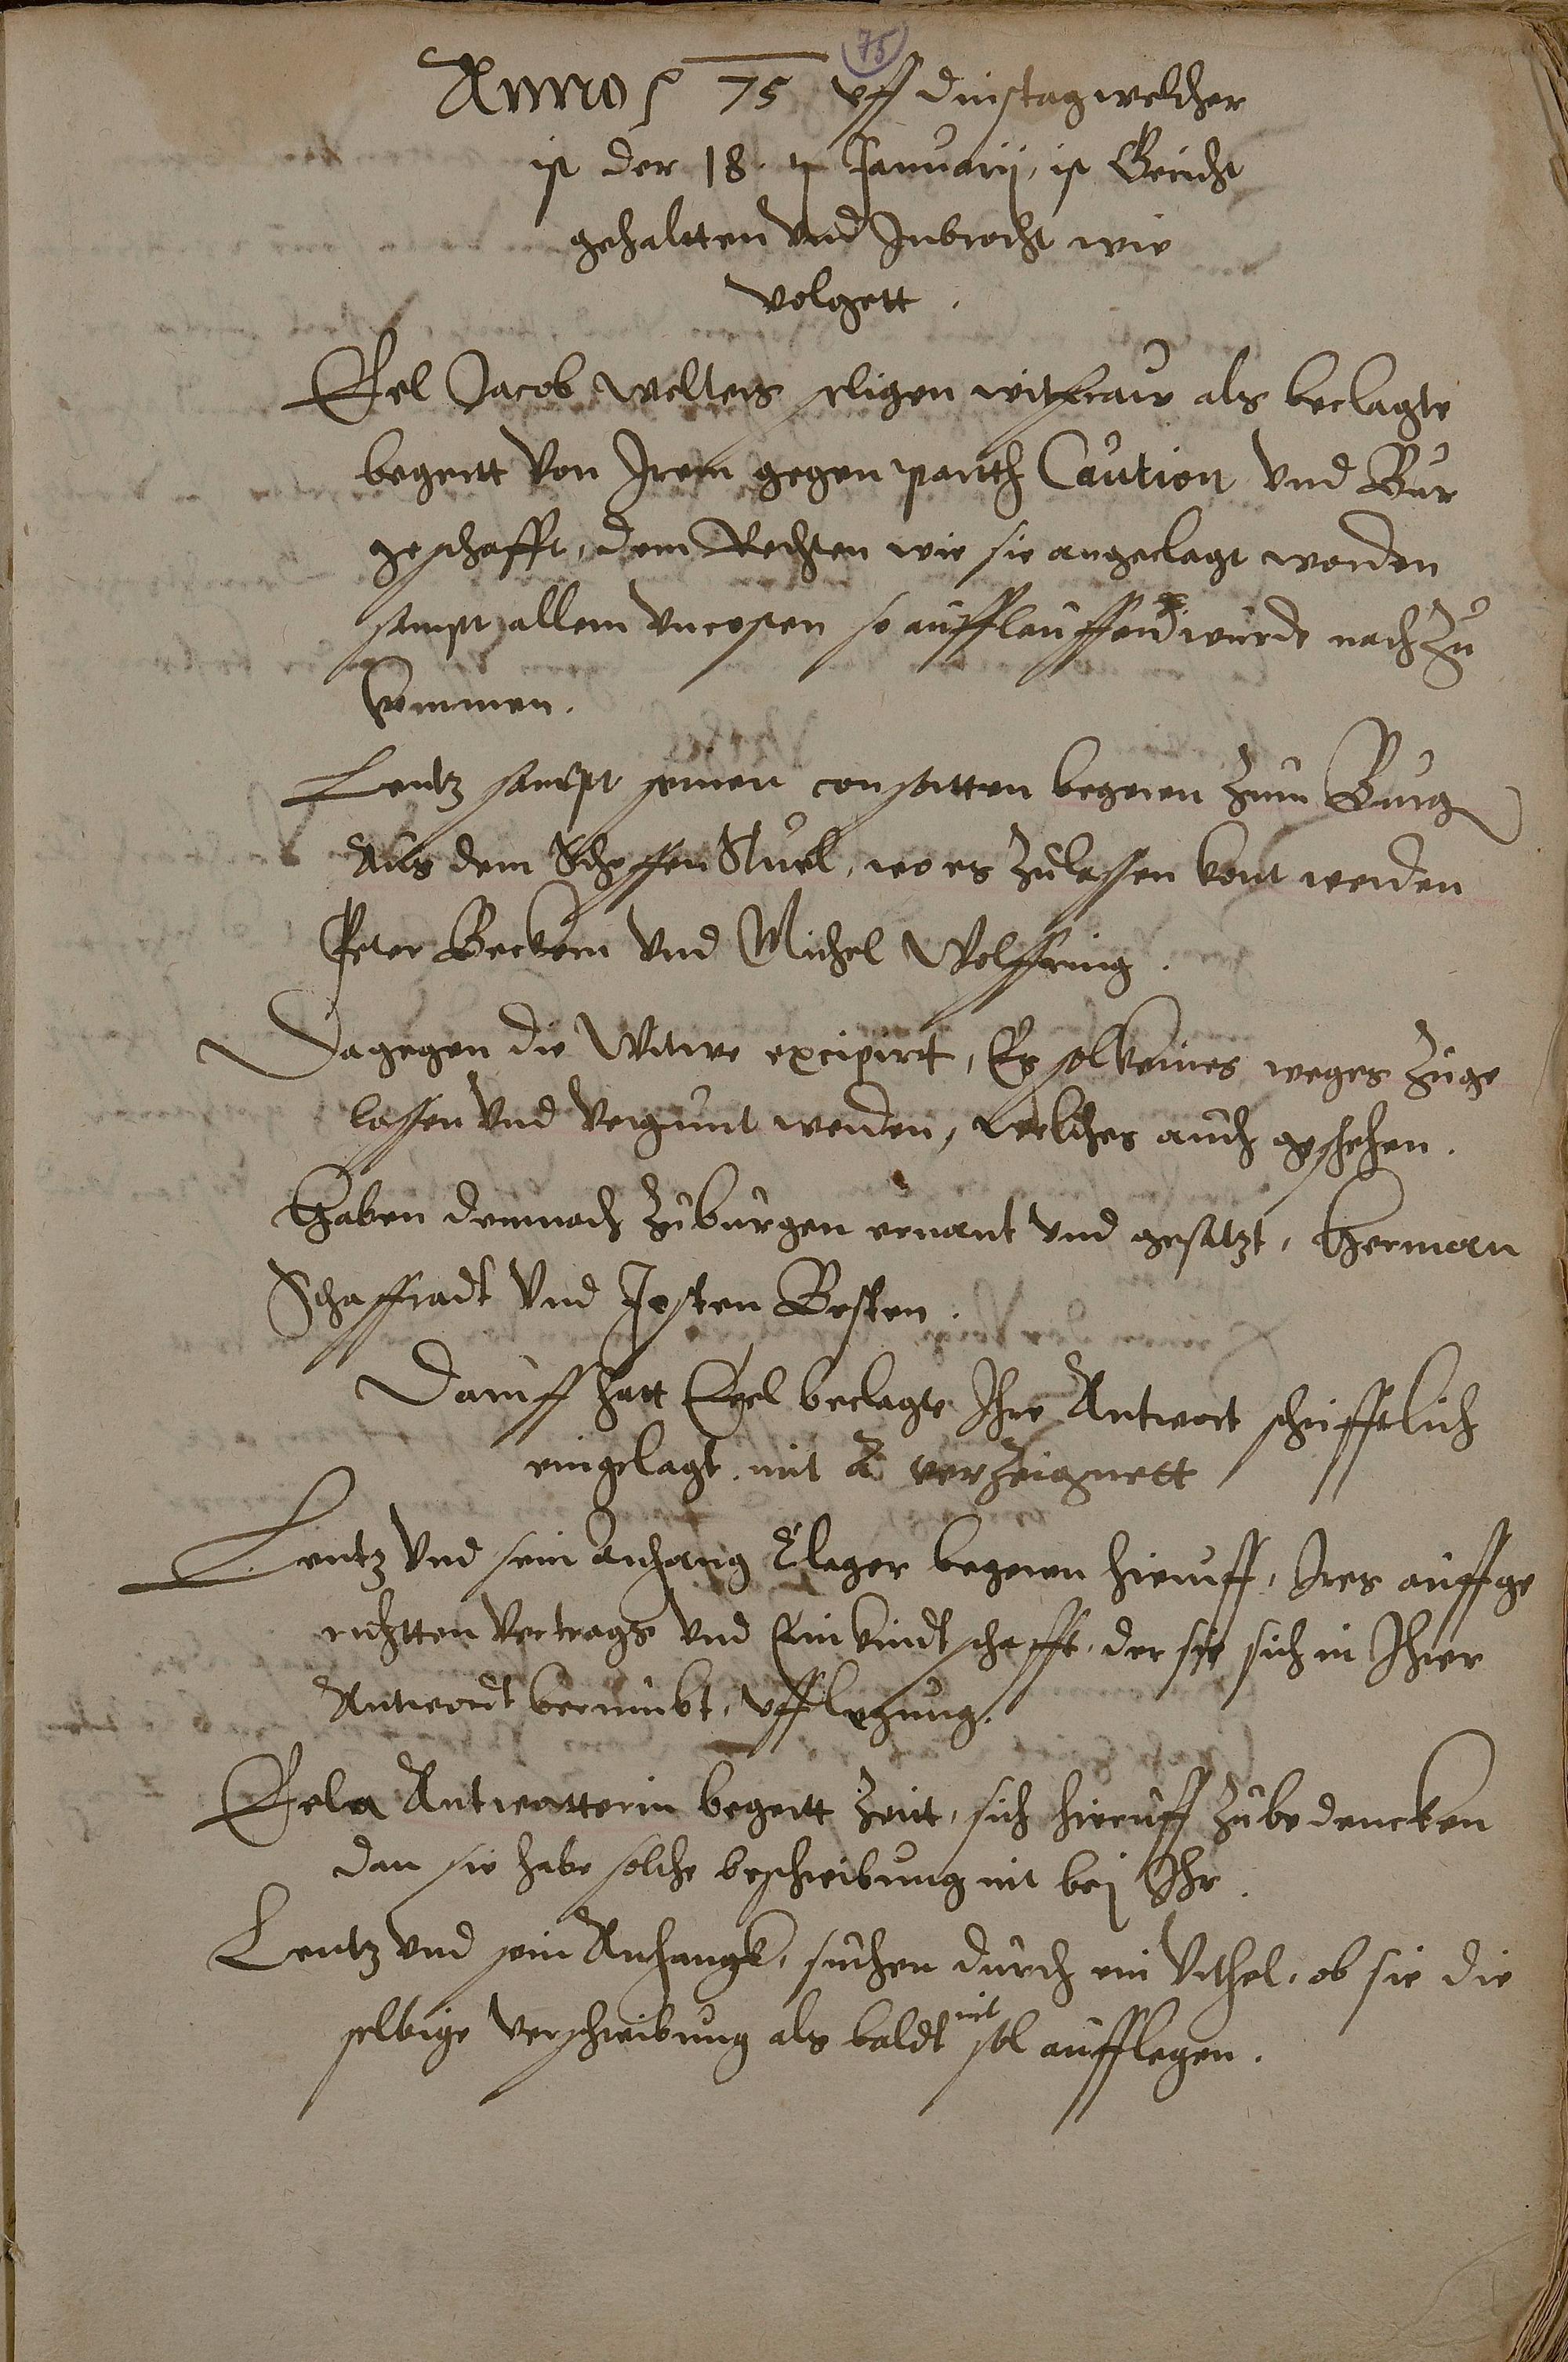 75
Anno 75 vff dinstag welcher
ist der 18. Januarij, ist Gericht
gehaltten vnd Inbracht wie
volgett.
Eel Jacob Welters seligen witfraw als beclagte
begertt von Irem gegen parth Caution vnd Bur
geschafft, dem Rechten wie sie angeclagt worden
sampt allem vncosten so aufflauffen wurde nach zu
kommen.
Lentz sampt seinen consortten begeren zum Burg
Aus dem Scheffen Stuel, wo es zulassen kont werden
Peter Beckern vnd Michel Wolffring.
Dagegen die Witwe excipirt, Es sol keines weges zuge
lassen vnd vergunt werden, welches auch geschehen.
Haben demnach zu burgen ernant vnd gesatzt, Herman
Schaffradt vnd Josten Besten.
Daruff hatt Eel beclagte Ihre Antwort schrifftlich
eingelagt mit A verzeignett
Lentz vnd sein anhang Cleger begeren hieruff, Ires auffge
richtten vertrags vnd Einkindtschafft, der sie sich in Ihrer
Antwordt berumbt, vfflegung.
Eela Antwortterin begertt Zeit, sich hieruff zubedencken
dan sie habe solche beschreibung nit bej Ihr.
Lentz vnd sein Anhangk, suchen durch ein Vrthel, ob sie die
selbige verschreibung als baldt nit sol aufflegen.